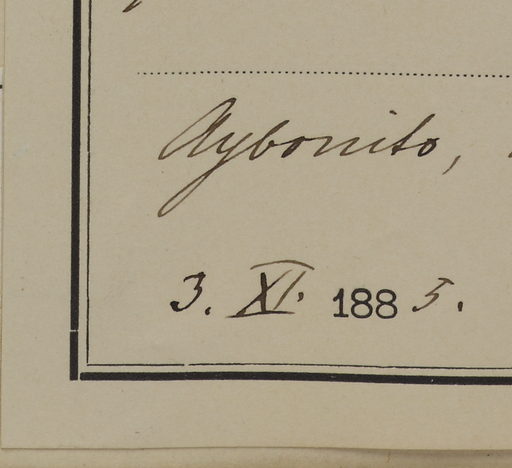 Aybonito,
3. XI. 1885.